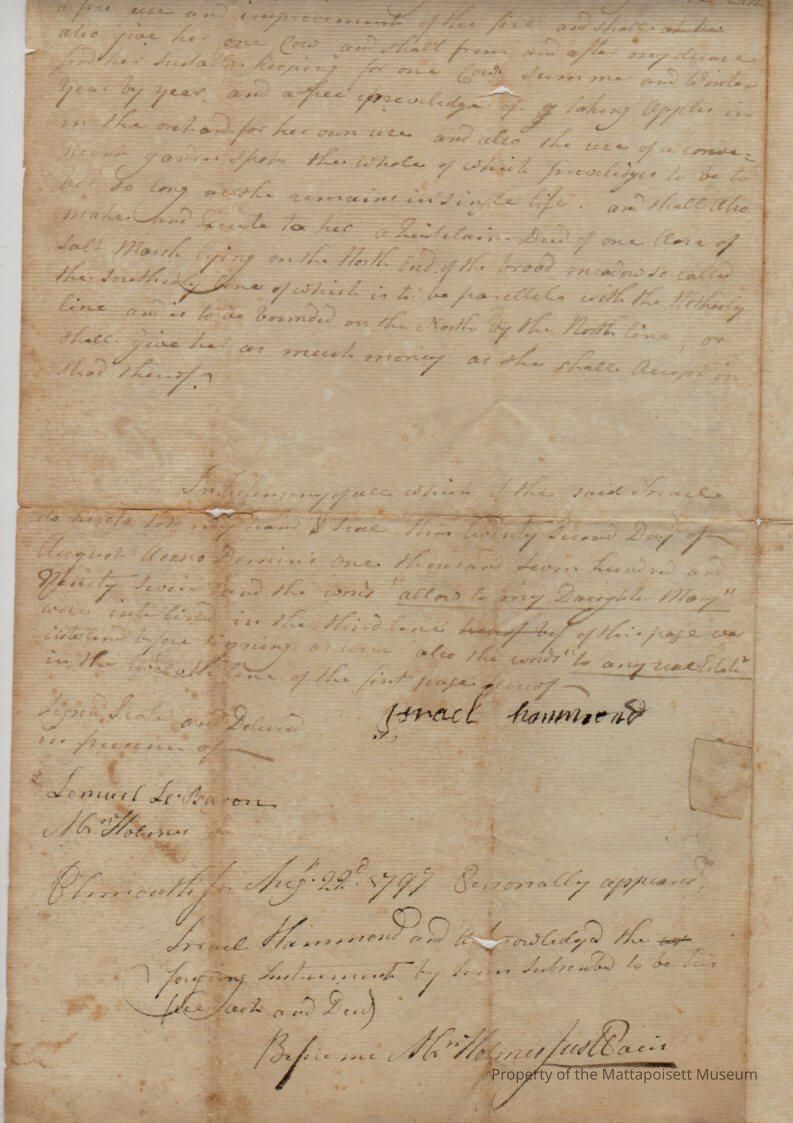 a free use and improvement of the fire and shall
also give her one Cow and shall from and after my decease
find her suitable keeping for one Cow summer and Winter
Year by year, and a free priveledge of taking Apples in
in the orchard for her own use and also the use of a conve-
nient garden spot the whole of which priveledges to be to
her so long as she remains in single life. and shall Also
make and Execute to her a Quitclaim Deed of one Acre of
Salt Marsh lying on the North End of the broad meadow so called
the southerly line of which is to be parellel with the Notherly
line and is to be bounded on the North by the North line, or
shall give her as much money as she shall Accept in
stead thereof.
In testimony of all which I the said Israel
do hereto set my hand & Seal this twenty Second Day of
August Anno Domini one thousand seven hundred and
Ninety Seven and the words "allow to my Daughter Mary"
were interlined in the third line of this page was
interlined before signing as were also the words "to any real Estate"
in the twelvth line of the first page hereof
Signd Seald and Deliverd
in presence of
Israel hammond
Lemuel Le Baron
Abrm Holmes
Plimouth Ss Augt 22d 1797 Personally appeared,
Israel Hammond and Acknowledged the
forgoing Instrument by him Subscribed to be his
free Act and Deed
Before me Abrm Holmes Just Pacis
Property of the Mattapoisett Museum